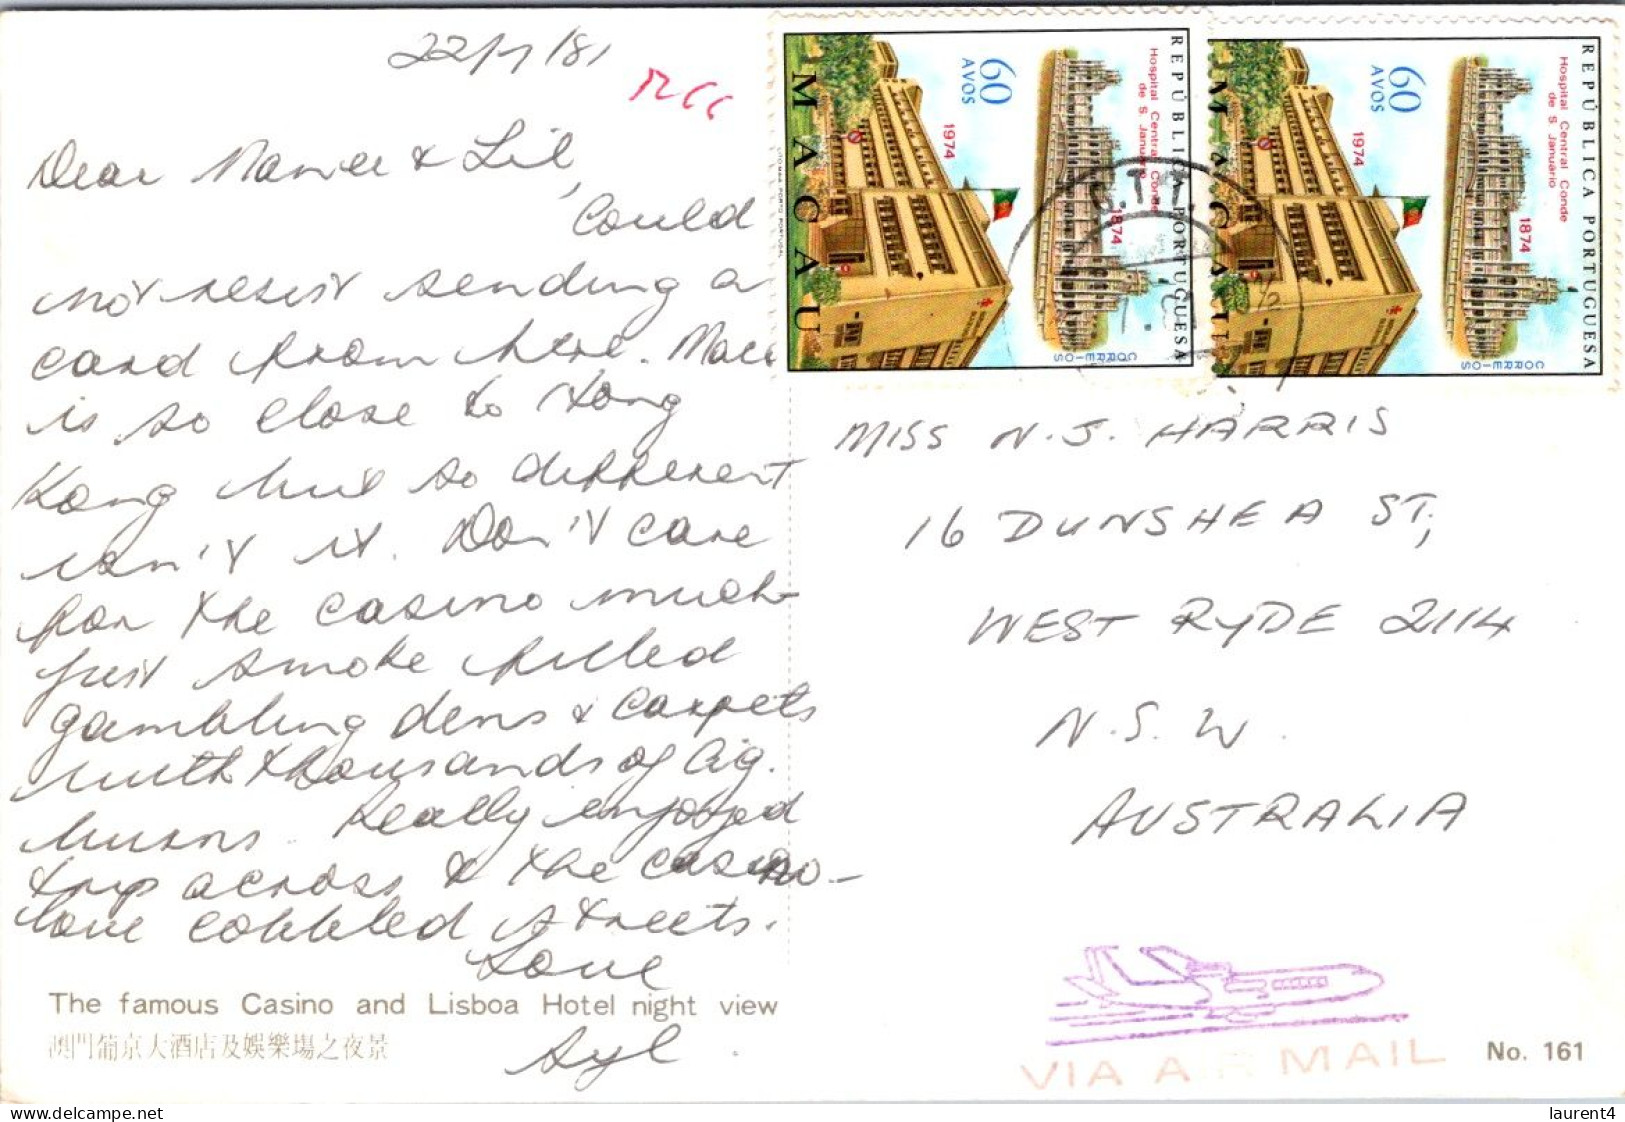 22/7/81
Rec
Dear Nance & Lil,
Could
not resist sending a
card from here. Maca
is so close to Hong
Kong but so different
isn't it. Don't care
for the casino much -
just smoke filled
gambling dens & carpets
with thousands of cig.
burns. Really enjoyed
trip across & the casino -
love cobbled streets.
Love
Syl.
The famous Casino and Lisboa Hotel night view
澳門葡京大酒店及娛樂場之夜景
REPÚBLICA PORTUGUESA
Hospital Central Conde
de S. Januario
1874
1974
60
AVOS
CORREIOS
MACAU
LITO MAIA PORTO PORTUGAL
REPÚBLICA PORTUGUESA
Hospital Central Conde
de S. Januario
1874
1974
60
AVOS
CORREIOS
MACAU
MISS N.J. HARRIS
16 DUNSHEA ST,
WEST RYDE 2114
N.S.W.
AUSTRALIA
VIA AIR MAIL
No. 161
laurent4